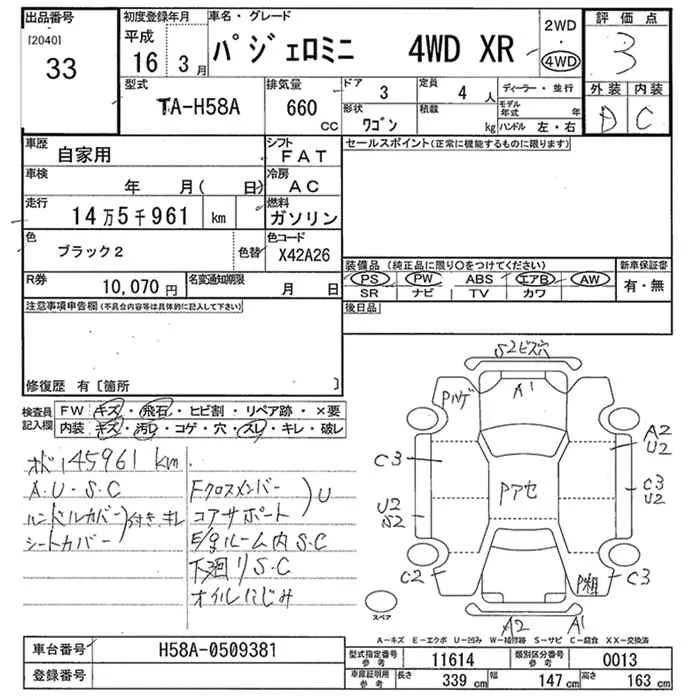 出品番号
[2040]
33
初度登録年月
平成
16 3月
車名・グレード
パジェロミニ 4WD XR
2WD
・
4WD
評価点
3
外装 内装
D C
型式
TA-H58A
排気量
660
cc
ドア 3
定員 4 人
ディーラー・並行
形状 ワゴン
積載 kg
モデル年式 年
ハンドル 左・右
車歴
自家用
シフト
FAT
セールスポイント(正常に機能するものに限ります)
車検
年 月( 日)
冷房
AC
走行
14万5千961 km
燃料
ガソリン
色
ブラック2
色替
色コード
X42A26
装備品(純正品に限り○をつけてください)
新車保証書
PS PW ABS エアB AW
SR ナビ TV カワ
有・無
R券
10,070円
名変通知期限
月 日
後日品
注意事項申告欄(不具合内容等は具体的に記入して下さい)
修復歴 有〔箇所 〕
検査員
記入欄
FW キズ・飛石・ヒビ割・リペア跡・×要
内装 キズ・汚レ・コゲ・穴・スレ・キレ・破レ
オド145961 km
A.U・S.C
ハンドルカバー
シートカバー
付き・キレ
Fクロスメンバー
コアサポート
U
E/gルーム内S.C
下廻りS.C
オイルにじみ
S2ビス穴
A1
Pハゲ
A2
U2
C3
C3
U2
Pアセ
U2
S2
C2
P粗
C3
スペア
A2
A1
A-キズ E-エクボ U-凹み W-補修跡 S-サビ C-腐食 XX-交換済
車台番号
H58A-0509381
登録番号
型式指定番号
参考
11614
類別区分番号
参考
0013
車庫証明用
参考
長さ 339 cm
幅 147 cm
高さ 163 cm